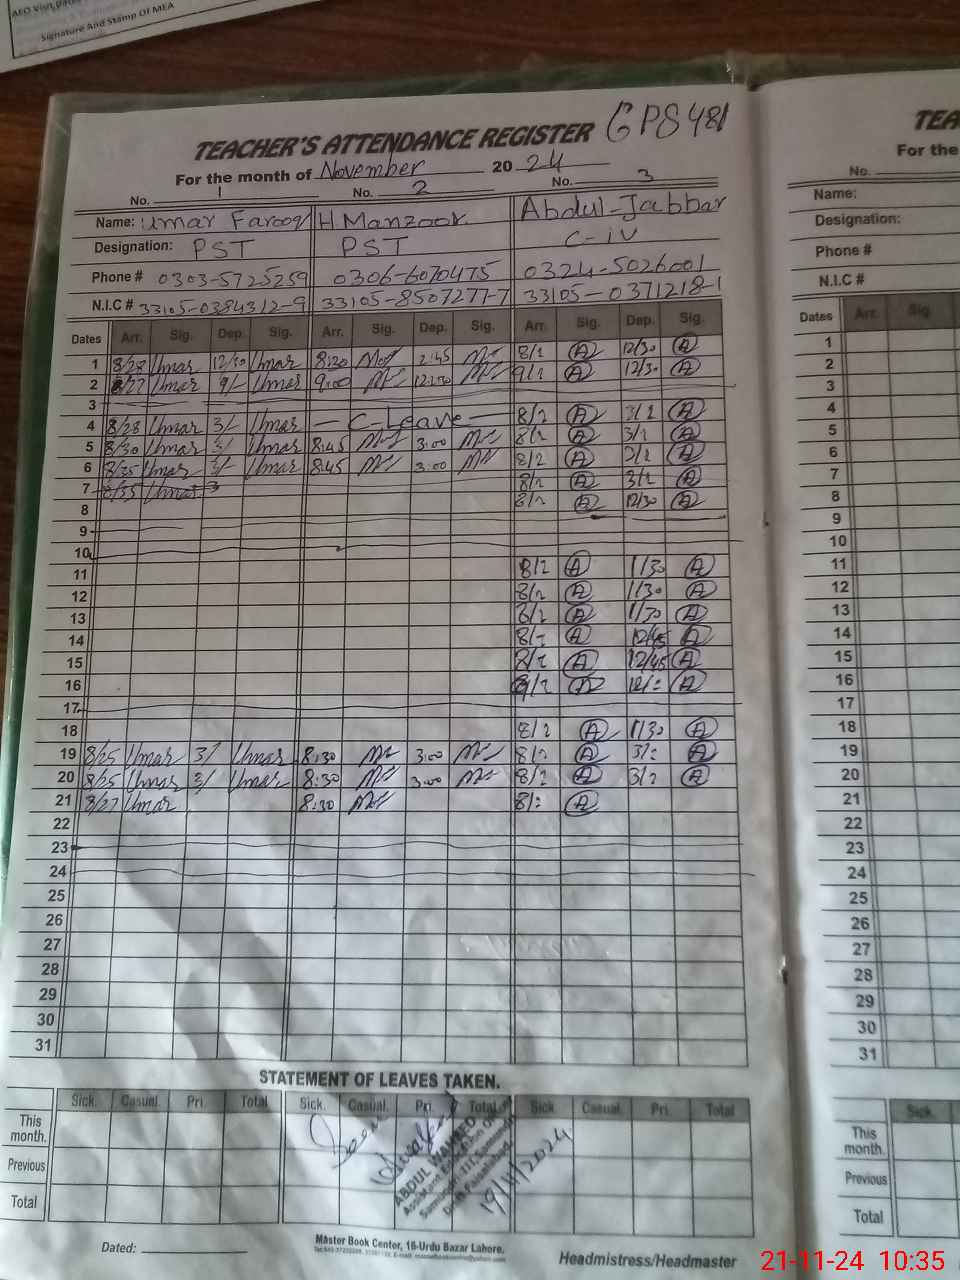 AEO Visit
Signature And Stamp Of MEA
TEACHER'S ATTENDANCE REGISTER GPS 481
For the month of November 2024
No. 1 No. 2 No. 3
Name: Umar Farooq H.Manzoor Abdul-Jabbar
Designation: PST PST C-iv
Phone # 0303-5725259 0306-6070475 0324-5026001
N.I.C # 33105-0384312-9 33105-8507277-7 33105-0371218-1
Dates Arr. Sig. Dep. Sig. Arr. Sig. Dep. Sig. Arr. Sig. Dep. Sig.
1 8/28 Umar 12/30 Umar 8:20 2:45 8/2 A 12/30 A
2 8/27 Umar 9/- Umar 9:00 12:30 9/2 A 12/30 A
3
4 8/28 Umar 3/ Umar - C-Leave - 8/2 A 3/2 A
5 8/30 Umar 3/ Umar 8:45 3:00 8/2 A 3/2 A
6 8/35 Umar 3/ Umar 8:45 3:00 8/2 A 2/2 A
7 8/35 Umar 3 8/2 A 3/2 A
8 8/2 A 12/30 A
9
10
11 8/2 A 1/30 A
12 8/2 A 1/30 A
13 8/2 A 1/30 A
14 8/2 A 12/45 A
15 8/2 A 12/45 A
16 9/2 A 12/2 A
17
18 8/2 A 1/30 A
19 8/25 Umar 3/ Umar 8:30 3:00 8/2 A 3/2 A
20 8/25 Umar 3/ Umar 8:30 3:00 8/2 A 3/2 A
21 8/27 Umar 8:30 8/2 A
22
23
24
25
26
27
28
29
30
31
STATEMENT OF LEAVES TAKEN.
Sick. Casual. Pri. Total Sick. Casual. Pri. Total Sick. Casual. Pri. Total
This month.
Previous
Total
ABDUL WAHEED
19/11/2024
Dated:
Master Book Center, 16-Urdu Bazar Lahore.
Headmistress/Headmaster
TEA
For the
No.
Name:
Designation:
Phone #
N.I.C #
Dates Arr. Sig.
1
2
3
4
5
6
7
8
9
10
11
12
13
14
15
16
17
18
19
20
21
22
23
24
25
26
27
28
29
30
31
Sick.
This month.
Previous
Total
21-11-24 10:35